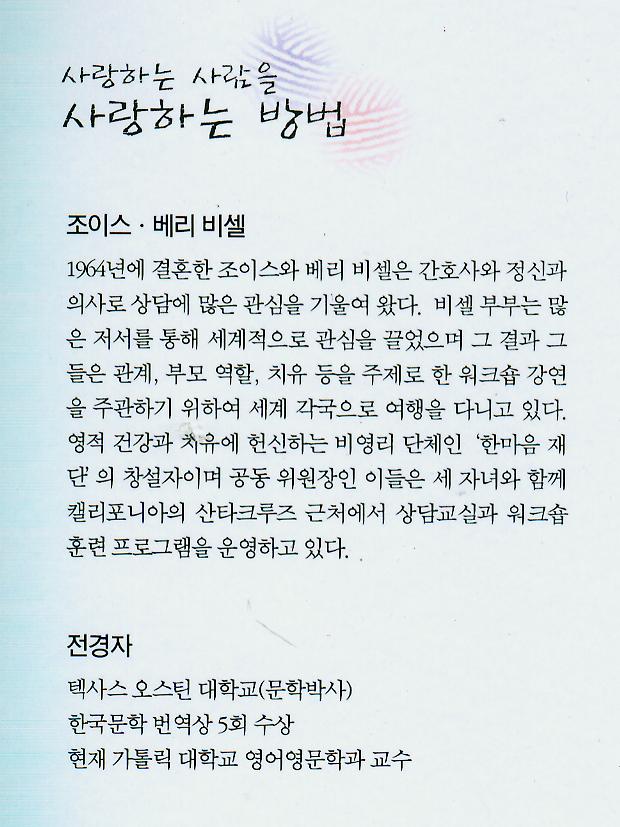 사랑하는 사람을
사랑하는 방법
조이스 · 베리 비셀
1964년에 결혼한 조이스와 베리 비셀은 간호사와 정신과
의사로 상담에 많은 관심을 기울여 왔다. 비셀 부부는 많
은 저서를 통해 세계적으로 관심을 끌었으며 그 결과 그
들은 관계, 부모 역할, 치유 등을 주제로 한 워크숍 강연
을 주관하기 위하여 세계 각국으로 여행을 다니고 있다.
영적 건강과 치유에 헌신하는 비영리 단체인 ‘한마음 재
단’의 창설자이며 공동 위원장인 이들은 세 자녀와 함께
캘리포니아의 산타크루즈 근처에서 상담교실과 워크숍
훈련 프로그램을 운영하고 있다.
전경자
텍사스 오스틴 대학교(문학박사)
한국문학 번역상 5회 수상
현재 가톨릭 대학교 영어영문학과 교수